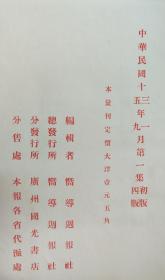 中華民國十三年一月第一集初版
五年九月第一集四版
本彙刊定價大洋壹元五角
編輯者 嚮導週報社
總發行所 嚮導週報社
分發行所 廣州國光書店
分售處 本報各省代派處